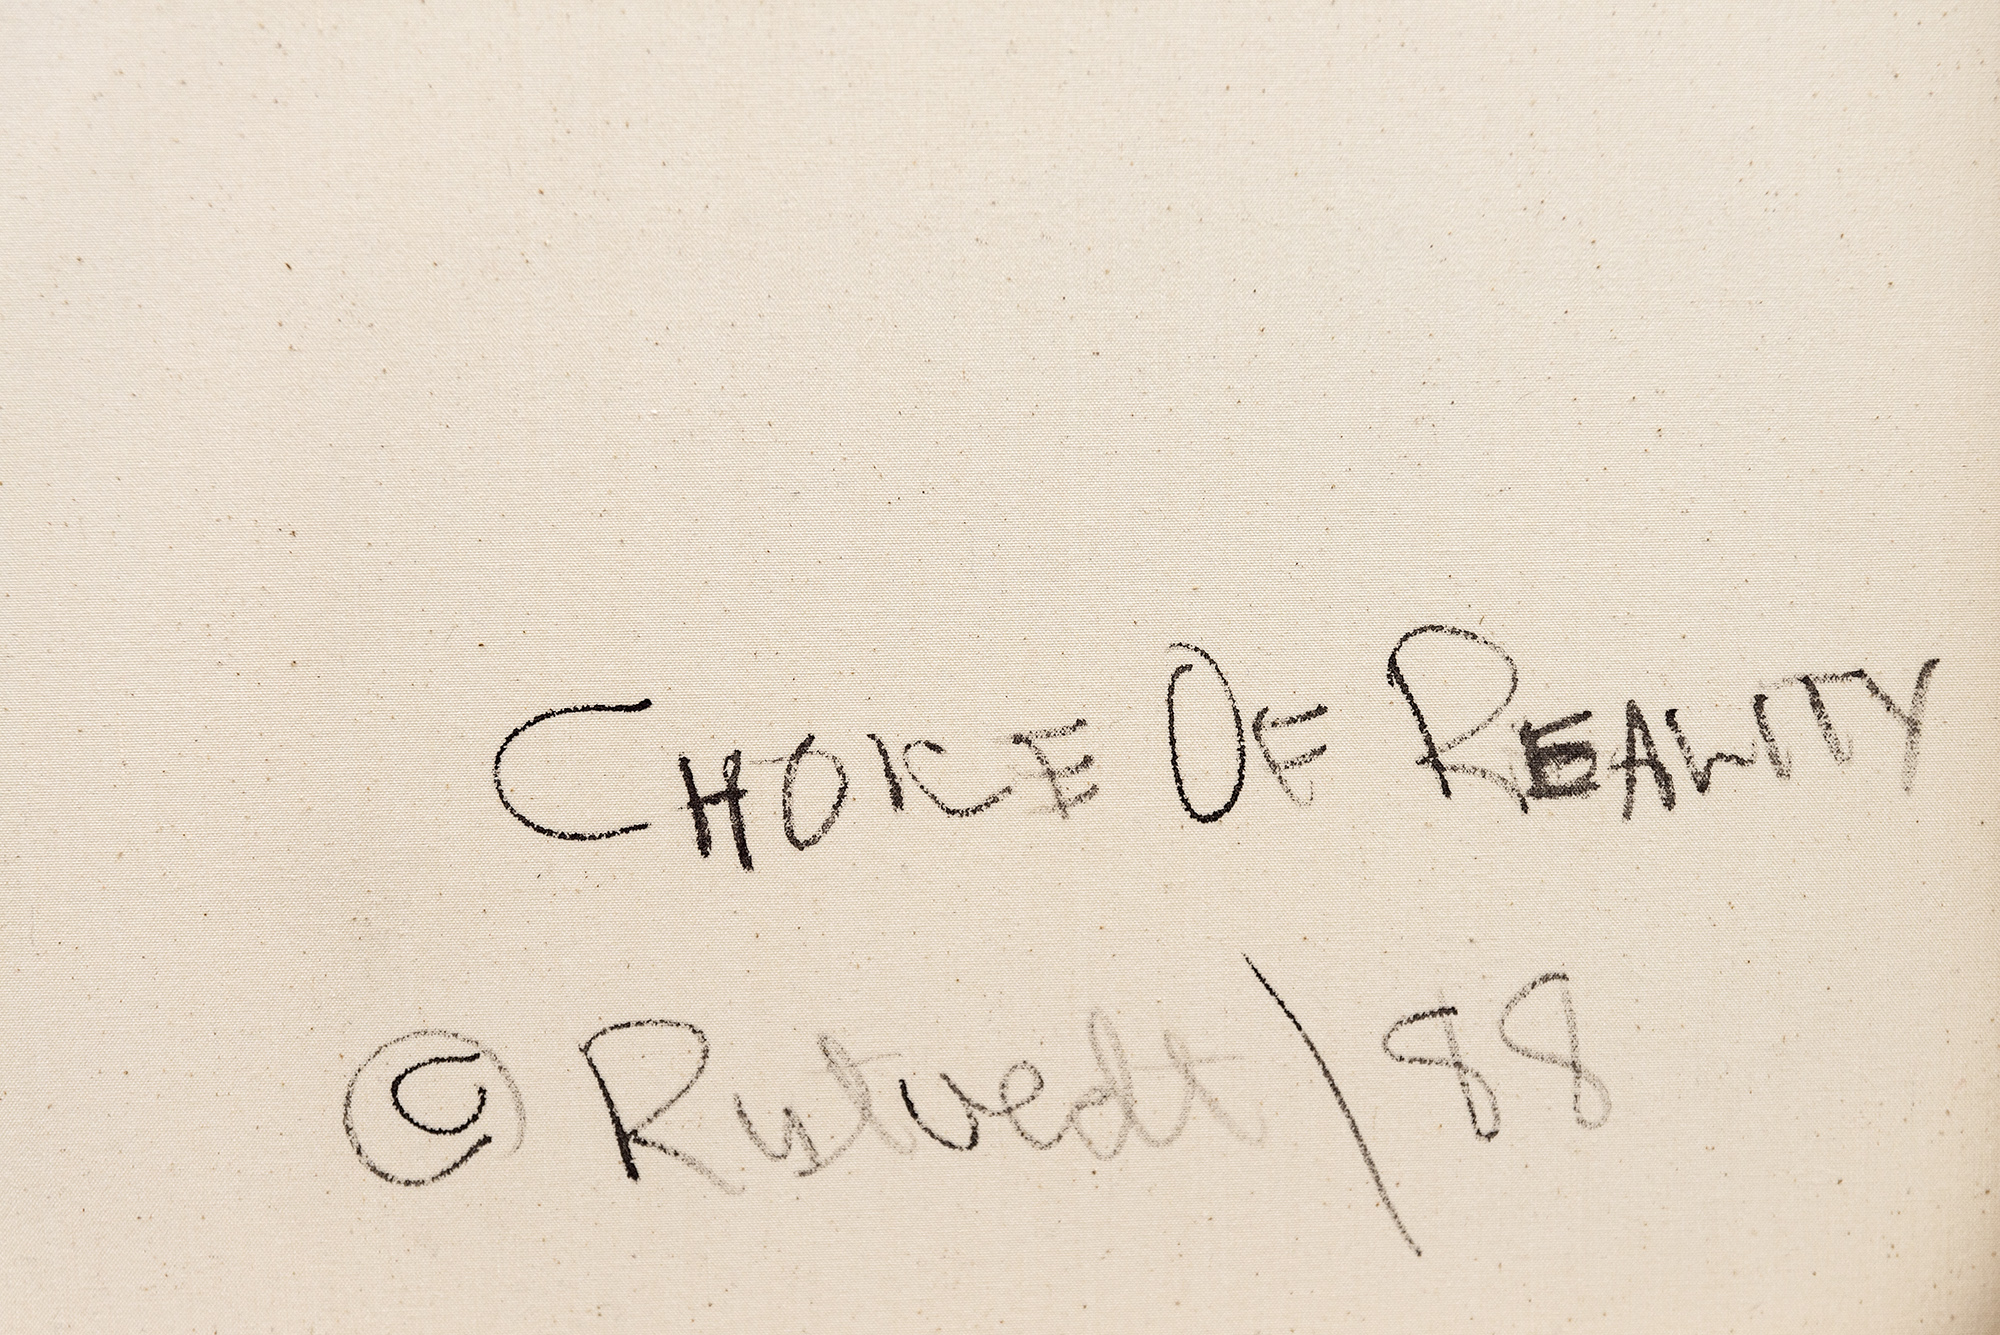 CHOICE OF REALITY
© Rutvedt / 88